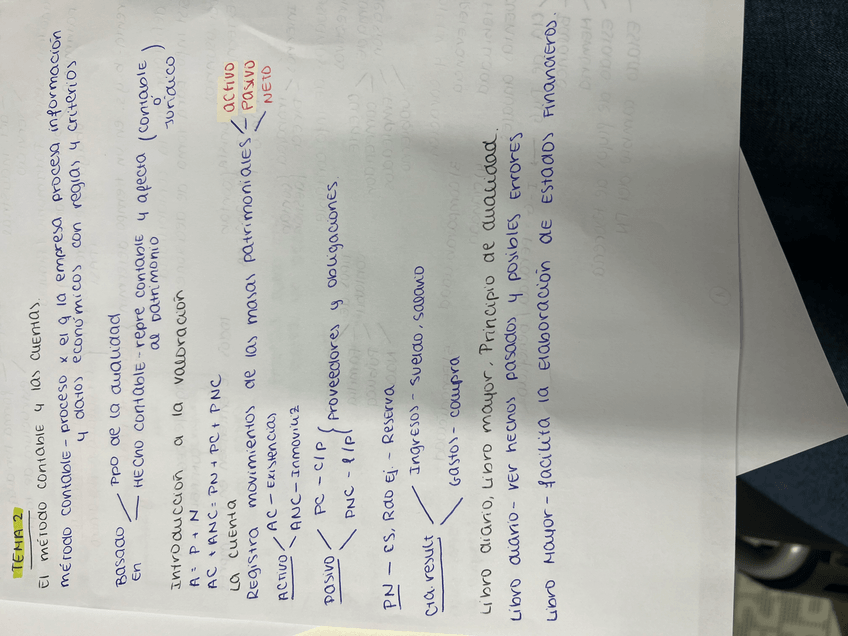 TEMA 2
El método contable y las cuentas.
método contable - proceso x el q la empresa procesa información
y datos económicos con reglas y criterios
Basado en
Ppo de la dualidad
HECHO contable - repre contable y afecta (contable o jurídico)
al patrimonio
Introducción a la valoración
A = P + N
AC + ANC = PN + PC + PNC
La cuenta
Registra movimientos de las masas patrimoniales
activo
Pasivo
NETO
ACTIVO
AC - Existencias
ANC - Inmoviliz
Pasivo
PC - c/p
PNC - l/p
Proveedores y obligaciones
PN - CS, Rdo Ej - Reserva
Cta. result
Ingresos - sueldo, salario
Gastos - compra
Libro diario, Libro mayor, Principio de dualidad.
Libro diario - ver hechos pasados y posibles Errores
Libro Mayor - facilita la Elaboración de Estados Financieros.